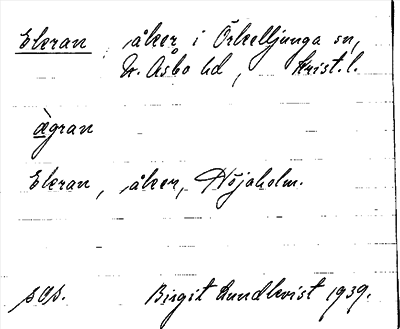 Ekran åker i Örkelljunga sn,
N. Åsbo hd, Krist. l.
ägran
Ekran, åker, Höjaholm.
sOs. Birgit Lundkvist 1939.